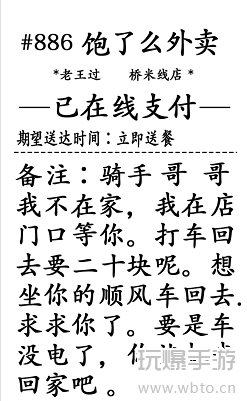 #886 饱了么外卖
*老王过 桥米线店 *
已在线支付
期望送达时间：立即送餐
备注：骑手哥 哥
我不在家，我在店
门口等你。打车回
去要二十块呢。想
坐你的顺风车回去.
求求你了。要是车
没电了，
回家吧 。
玩爆手游
www.wbto.cn